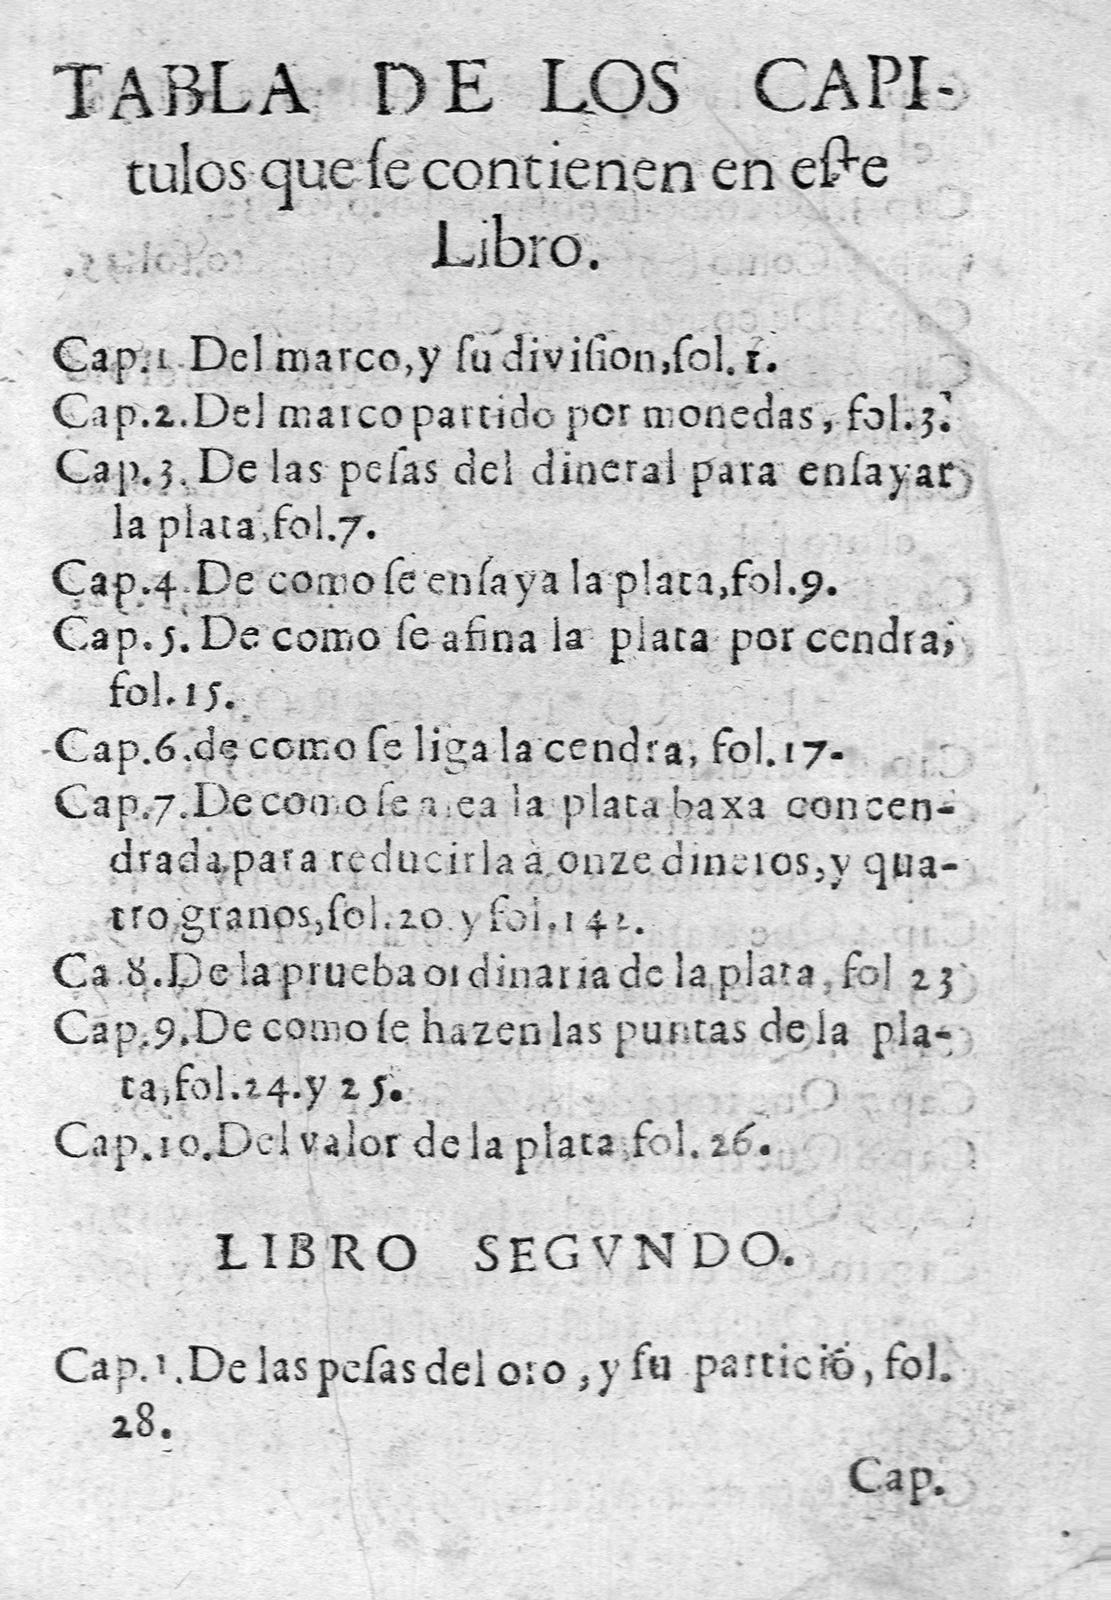 TABLA DE LOS CAPI-
tulos que ſe contienen en eſte
Libro.
Cap.1 Del marco, y ſu diviſion, fol. 1.
Cap.2. Del marco partido por monedas, fol.3.
Cap.3. De las peſas del dineral para enſayar
la plata, fol.7.
Cap.4. De como ſe enſaya la plata, fol.9.
Cap.5. De como ſe afina la plata por cendra,
fol.15.
Cap.6.de como ſe liga la cendra, fol.17.
Cap.7. De como ſe la plata baxa concen-
drada para reducirla à onze dineros, y qua-
tro granos, fol.20 y fol.142.
Ca 8. De la prueba ordinaria de la plata, fol 23
Cap.9. De como ſe hazen las puntas de la pla-
ta, fol.24. y 25.
Cap.10. Del valor de la plata fol. 26.
LIBRO SEGVNDO.
Cap.1. De las peſas del oro, y ſu particiõ, fol.
28.
Cap.